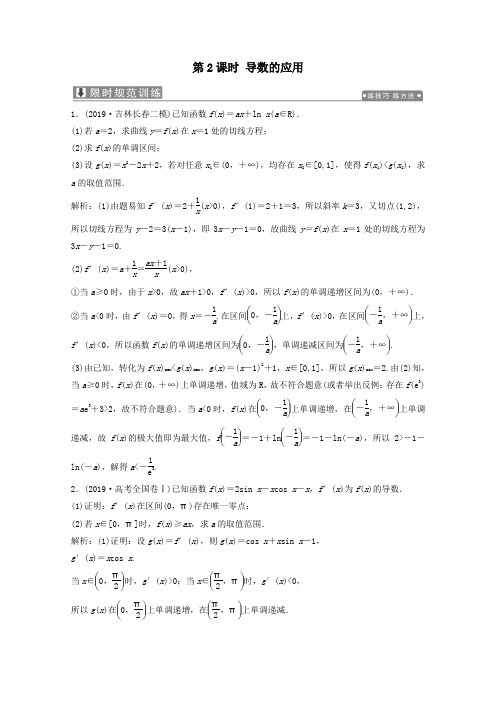 第2课时 导数的应用
限时规范训练
练技巧 练方法
1．(2019·吉林长春二模)已知函数f(x)＝ax＋ln x(a∈R)．
(1)若a＝2，求曲线y＝f(x)在x＝1处的切线方程；
(2)求f(x)的单调区间；
(3)设g(x)＝x²－2x＋2，若对任意x₁∈(0，＋∞)，均存在x₂∈[0,1]，使得f(x₁)<g(x₂)，求
a的取值范围．
解析：(1)由题易知f′(x)＝2＋1/x(x>0)，f′(1)＝2＋1＝3，所以斜率k＝3，又切点(1,2)，
所以切线方程为y－2＝3(x－1)，即3x－y－1＝0，故曲线y＝f(x)在x＝1处的切线方程为
3x－y－1＝0.
(2)f′(x)＝a＋1/x＝(ax＋1)/x(x>0)，
①当a≥0时，由于x>0，故ax＋1>0，f′(x)>0，所以f(x)的单调递增区间为(0，＋∞)．
②当a<0时，由f′(x)＝0，得x＝－1/a.在区间(0，－1/a)上，f′(x)>0，在区间(－1/a，＋∞)上，
f′(x)<0，所以函数f(x)的单调递增区间为(0，－1/a)，单调递减区间为(－1/a，＋∞).
(3)由已知，转化为f(x)max<g(x)max，g(x)＝(x－1)²＋1，x∈[0,1]，所以g(x)max＝2.由(2)知，
当a≥0时，f(x)在(0，＋∞)上单调递增，值域为R，故不符合题意(或者举出反例：存在f(e³)
＝ae³＋3>2，故不符合题意)．当a<0时，f(x)在(0，－1/a)上单调递增，在(－1/a，＋∞)上单调
递减，故f(x)的极大值即为最大值，f(－1/a)＝－1＋ln(－1/a)＝－1－ln(－a)，所以2>－1－
ln(－a)，解得a<－1/e³.
2．(2019·高考全国卷Ⅰ)已知函数f(x)＝2sin x－xcos x－x，f′(x)为f(x)的导数．
(1)证明：f′(x)在区间(0，π)存在唯一零点；
(2)若x∈[0，π]时，f(x)≥ax，求a的取值范围．
解析：(1)证明：设g(x)＝f′(x)，则g(x)＝cos x＋xsin x－1，
g′(x)＝xcos x.
当x∈(0，π/2)时，g′(x)>0；当x∈(π/2，π)时，g′(x)<0，
所以g(x)在(0，π/2)上单调递增，在(π/2，π)上单调递减．